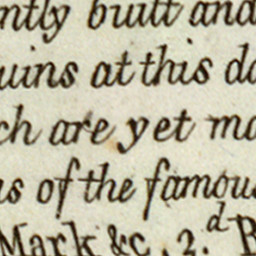 ntly built and
uins at this da
ch are yet mo
s of the famou
Mark &c. 2.d B